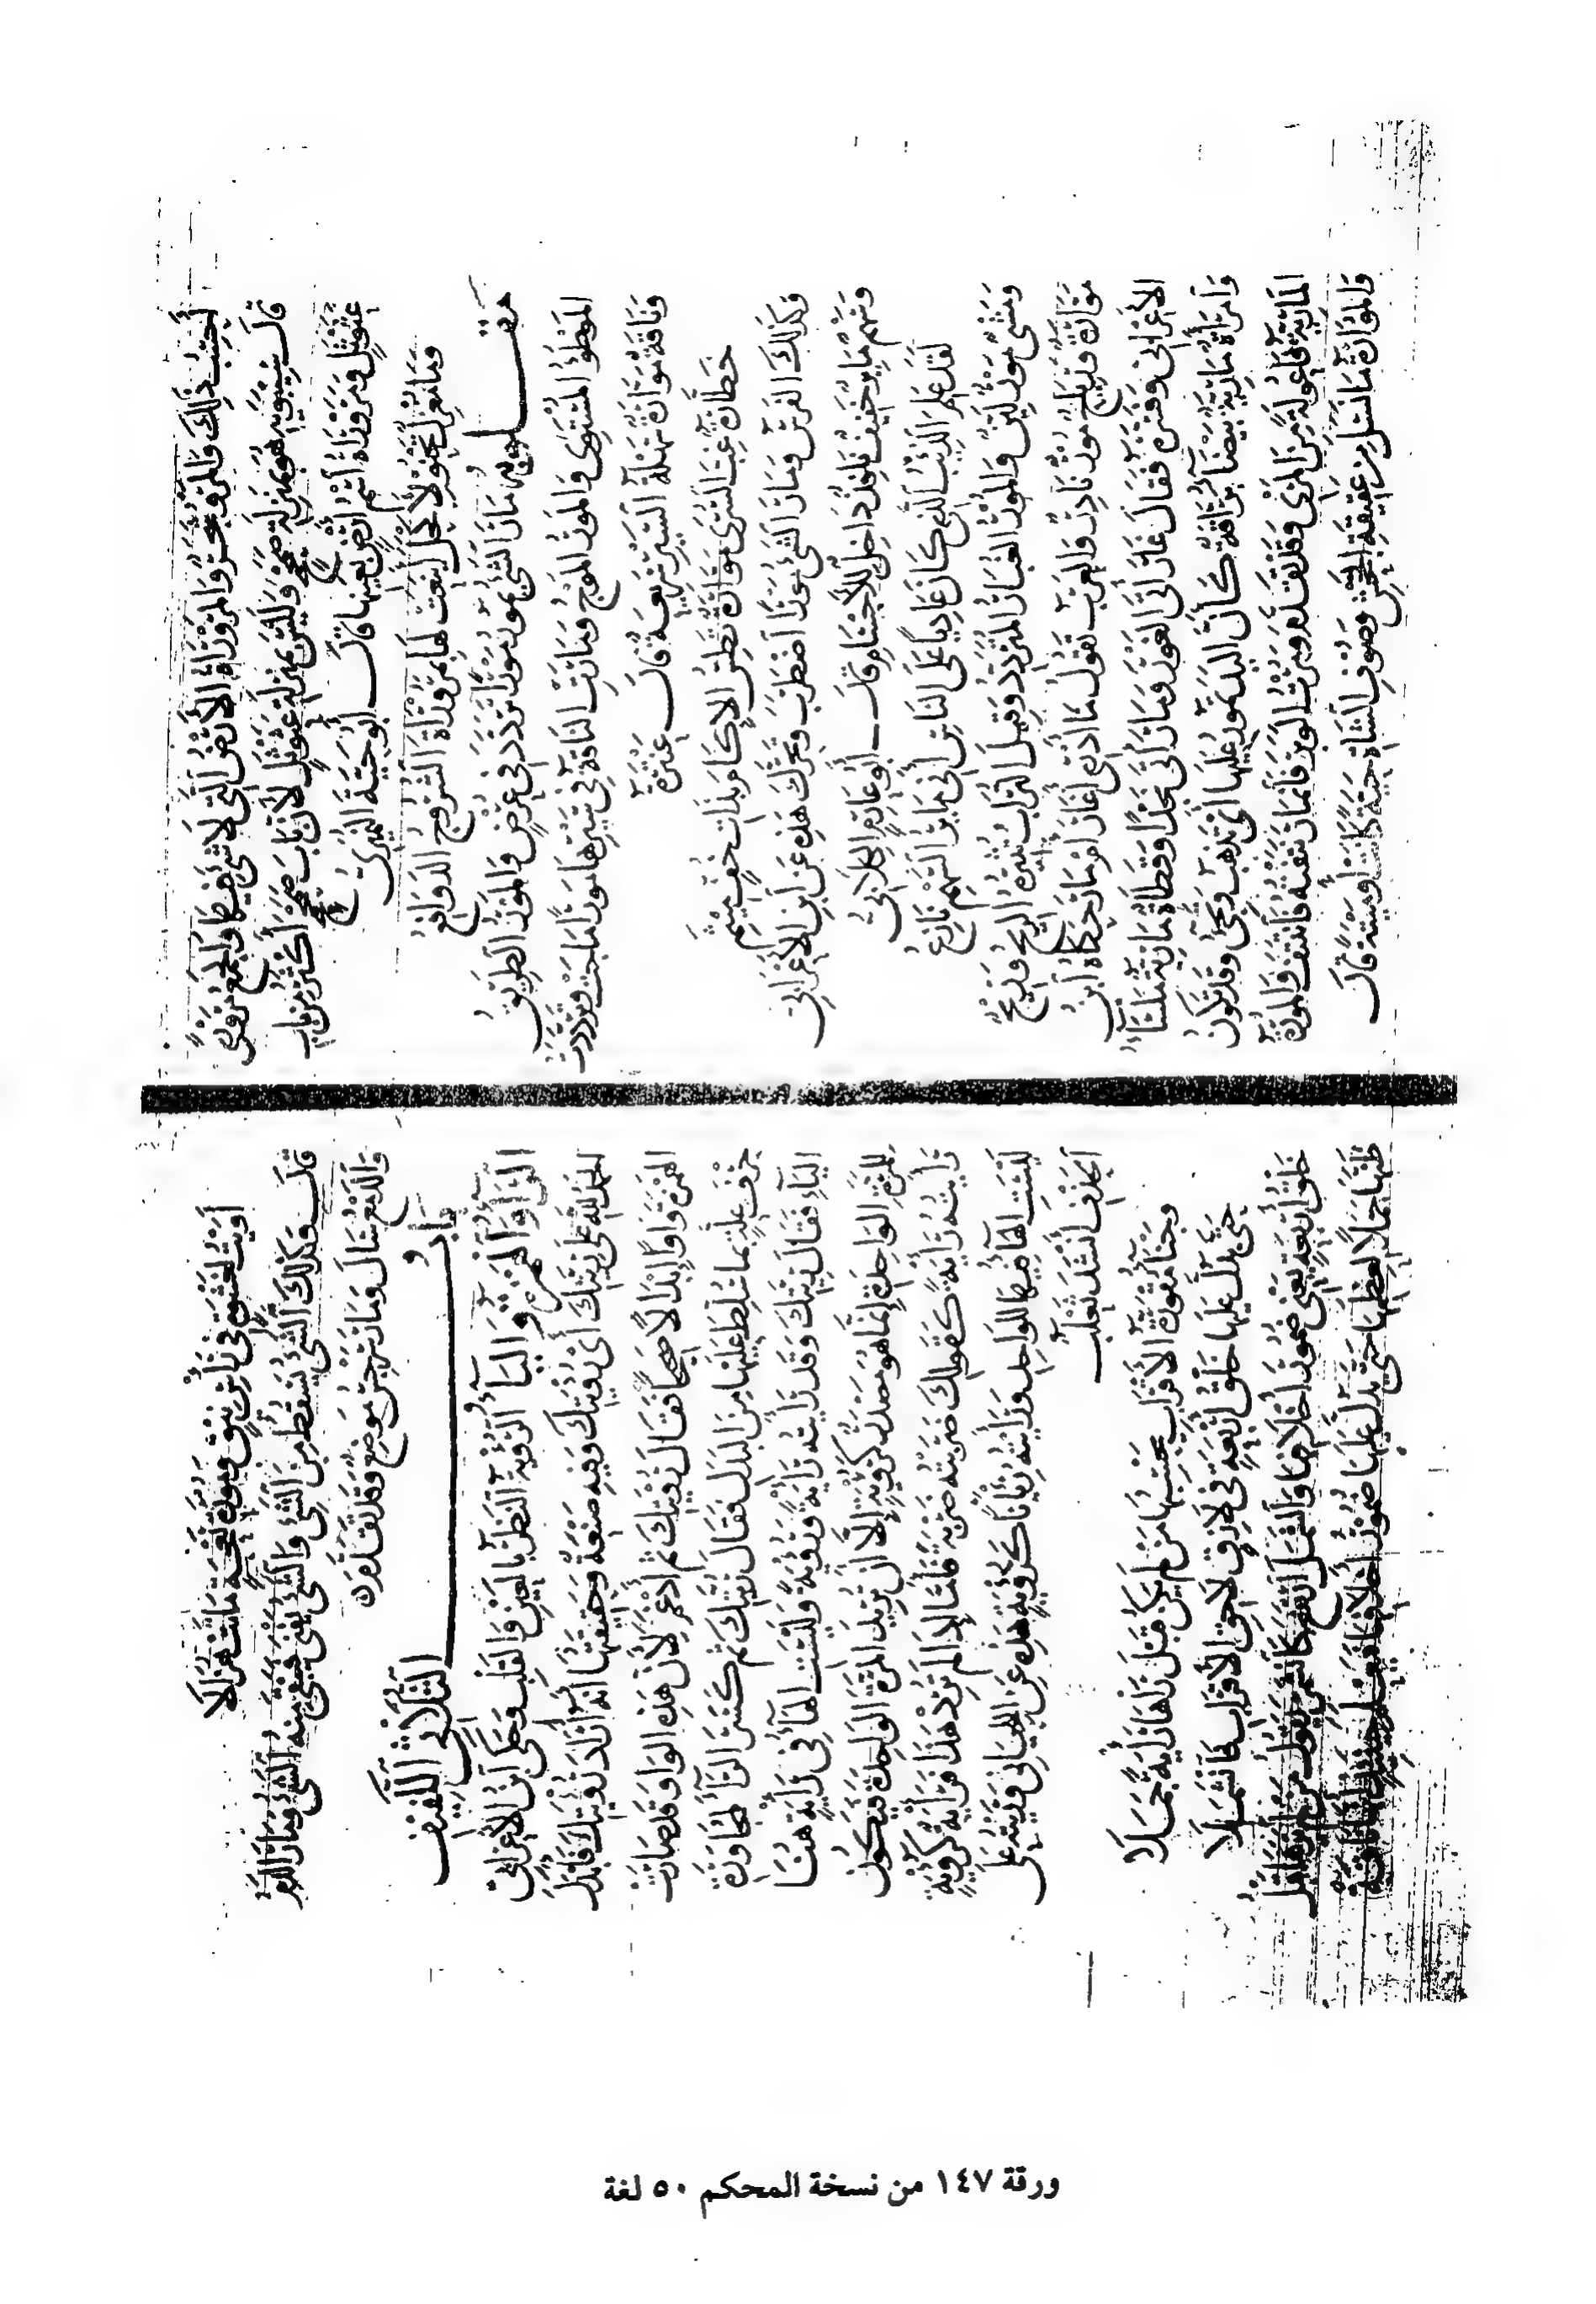 أحتسب ذلك والمرو شجر والمروراة الأرض التي لا شيء فيها والجمع مرورى
قال سيبويه هو بمنزلة صمحمح وليس بمنزلة عثوثل لأن باب صمحمح أكثر من باب
عثوثل ومروراة اسم أرض بعينها قال أبو حية النميري
وما مغزل تحنو لأكحل أينعت لها بمروراة الشروج الدوافع
مقلوبه مار الشيء يمور مورا تردد في عرض والمور الطريق
الموطوء المستوي والمور الموج ومارت الناقة في سيرها مورا ماجت وترددت
وناقة موارة سهلة السير سريعة قال عنترة
خطارة غب السرى موارة تطس الإكام بذات خف ميثم
وكذلك الفرس ومار الشيء مورا اضطرب وتحرك هذه عن ابن الأعرابي
وسهم مائر خفيف نافذ داخل للأجسام قال أبو عامر الكلابي
لقد علم الذئب الذي كان عاديا على الناس أني مائر السهم نازع
ومشي مور لين والمور الغبار المتردد وقيل التراب تثيره الريح وريح
موارة وأرياح مور نادر والعرب تقول ما أدري أغار أم مار حكاه ابن
الأعرابي وفسره فقال غار أتى الغور ومار أتى نجدا وقطاة مارية ملساء
وامرأة مارية بيضاء براقة كأن اليد تمور عليها أي تذهب وتجيء وقد تكون
المارية فاعولة من المري وقد تقدم ومرت الوبر فانمار نتفته فانتتف والمورة
والموارة ما نسل من عقيقة الجحش وصوف الشاة حية كانت أو ميتة قال
أويت لعشوة في رأس نيق ومورة نعجة ماتت هزالا
قال وكذلك الشيء يسقط من الشيء والشيء يفنى فيبقى منه الشيء ومار الدم
والدمع سال ومار سرجس موضع وقد تقدم
باب الثلاثي اللفيف
الراء والهمزة والياء الرؤية النظر بالعين والقلب وحكى ابن الأعرابي
الحمد لله على ريتك أي رؤيتك وفيه صنعة وحقيقتها أنه أراد رؤيتك فأبدل
الهمزة واوا إبدالا صحيحا فقال رويتك ثم أدغم لأن هذه الواو قد صارت
حرف علة بما سلط عليها من البدل فقال ريتك ثم كسر الراء لمجاورة
الياء فقال ريتك وقد رأيته رأية ورؤية وليست الهاء في رأية هنا
للمرة الواحدة إنما هو مصدر كرؤية إلا أن تريد المرة الواحدة فيكون
رأيته رأية كقولك ضربته ضربة فأما إذا لم ترد هذا فرأية كرؤية
ليست الهاء فيها للواحد ورأيته رئيانا كرؤية هذه عن اللحياني وريته على
الحذف أنشد ثعلب
وجناء مقورة الأقراب يحسبها من لم يكن قبل راها رأية جملا
حتى يدل عليها خلق أربعة في لازق لاحق الأقراب فانشملا
خلق أربعة يعني ضمور أخلافها وانشمل ارتفع كانشمر يقول من لم يرها قبل
ظنها جملا لعظمها حتى يدل عليها ضمور أخلافها فيعلم حينئذ أنها ناقة
ورقة ١٤٧ من نسخة المحكم ٥٠ لغة